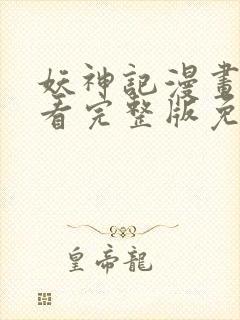 妖神記漫畫
看完整版免
皇帝龍